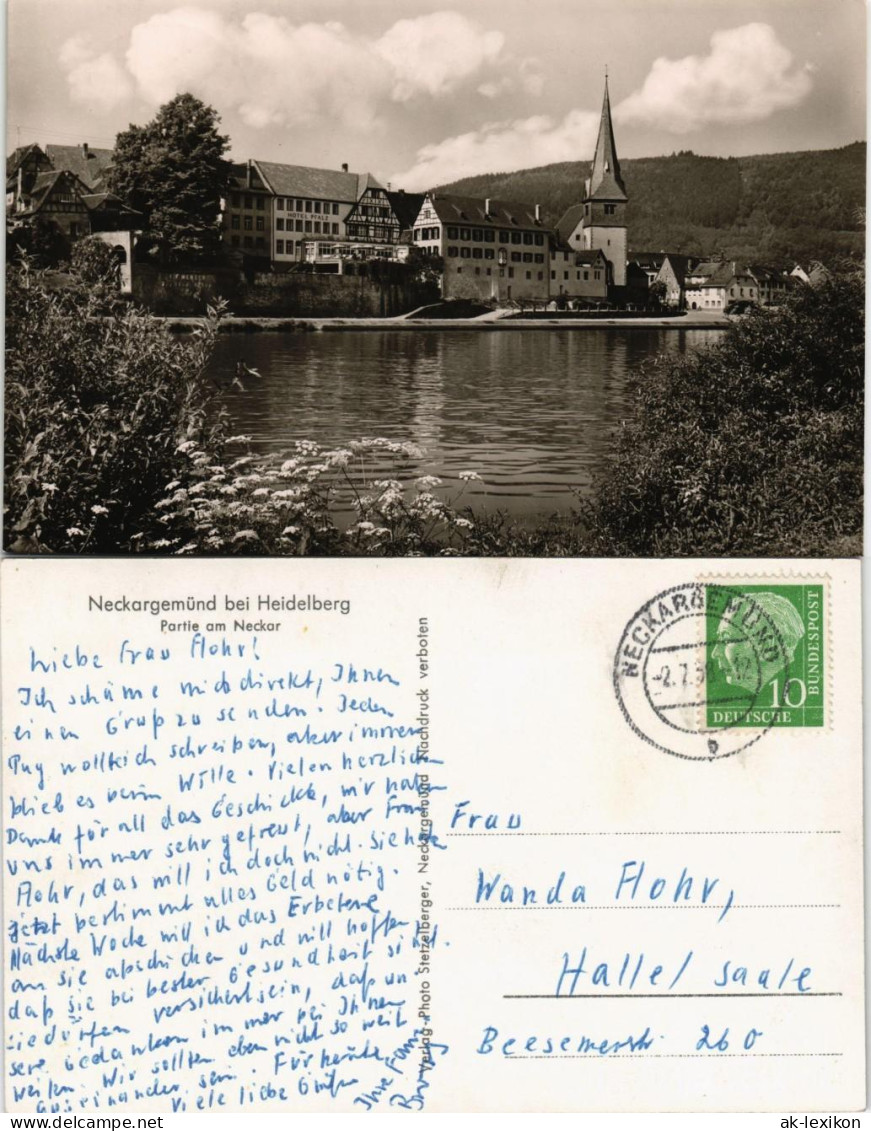 HOTEL PFALZ
Neckargemünd bei Heidelberg
Partie am Neckar
Liebe Frau Flohr!
Ich schäme mich direkt, Ihnen
einen Gruß zu senden. Jeden
Tag wollte ich schreiben, aber immer
blieb es beim Wille. Vielen herzlichen
Dank für all das Geschickte, wir haben
uns immer sehr gefreut, aber Frau
Flohr, das will ich doch nicht. Sie haben
jetzt bestimmt alles Geld nötig.
Nächste Woche will ich das Erbetene
an sie abschicken und will hoffen,
daß sie bei bester Gesundheit sind.
Sie dürfen versichert sein, daß un-
sere Gedanken immer bei Ihnen
weilen. Wir sollten eben nicht so weit
auseinander sein. Für heute
viele liebe Grüße
Ihre Fam.
Verlag-Photo Stetzelberger, Neckargemünd Nachdruck verboten
NECKARGEMÜND
-2.7.58-12
b
10
DEUTSCHE
BUNDESPOST
Frau
Wanda Flohr,
Halle/Saale
Beesenerstr. 260
www.ansichtskarten-lexikon.de
ak-lexikon